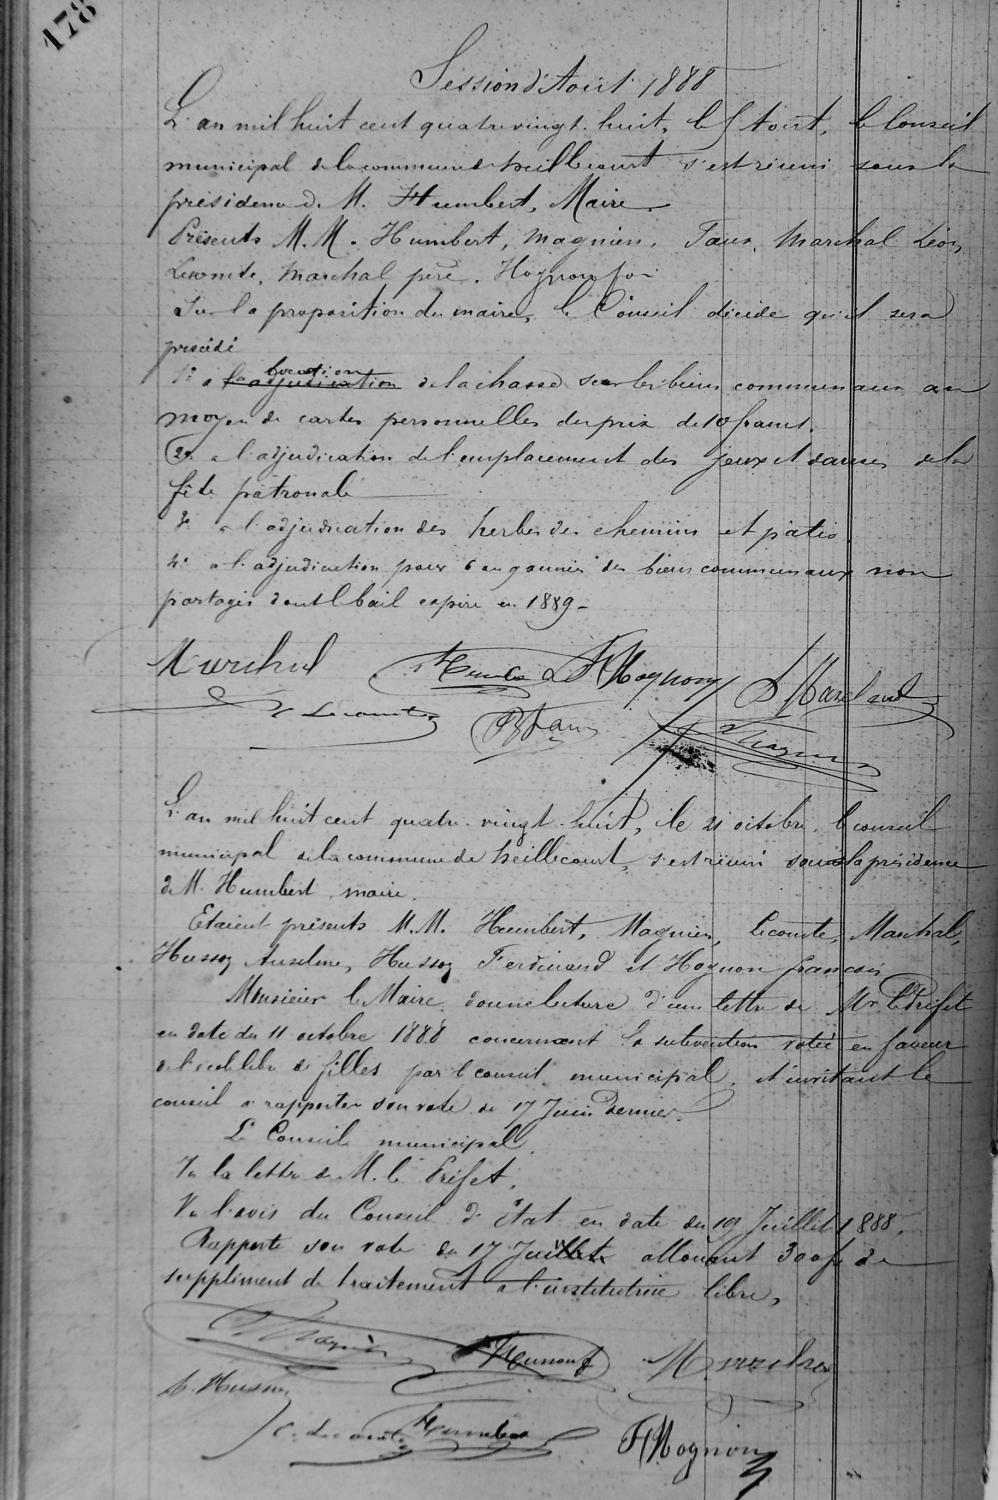 178
Session d'Aout 1888
L'an mil huit cent quatre vingt huit, le 5 Aout, le Conseil
municipal de la commune de heillecourt s'est réuni sous la
présidence de M. Humbert, Maire.
Présents M.M. Humbert, Magnien, Faux, Marchal Léon
Lecomte, Marchal père, Hognon
Sur la proposition du maire, le Conseil décide qu'il sera
procédé
1° a la adjudication location de la chasse sur les biens communaux au
moyen de cartes personnelles du prix de 10 francs.
2° a l'adjudication de l'emplacement des jeux et danses de la
fête patronale
3° a l'adjudication des herbes des chemins et patis
4° a l'adjudication pour 6 ou 9 années des biens communaux non
partagés dont le bail expire en 1889 -
Marchal Humbert F Hognon L Marchal
C Lecomte Faux Magnien
L'an mil huit cent quatre-vingt-huit, le 21 octobre, le conseil
municipal de la commune de heillecourt, s'est réuni sous la présidence
de M. Humbert maire.
Etaient présents M.M. Humbert, Magnien, Lecomte, Marchal,
Husson Anselme, Husson Ferdinand et Hognon françois
Monsieur le Maire donne lecture d'une lettre de Mr le Préfet
en date du 11 octobre 1888 concernant la subvention votée en faveur
de l'école libre de filles par le conseil municipal, et invitant le
conseil a rapporter son vote du 17 Juin dernier.
Le Conseil municipal,
Vu la lettre de M. le Préfet,
Vu l'avis du Conseil d'état en date du 19 Juillet 1888,
Rapporte son vote du 17 Juin allouant 300f de
supplément de traitement a l'institutrice libre,
Magnien Marchal
A. Husson
C. Lecomte Humbert F Hognon